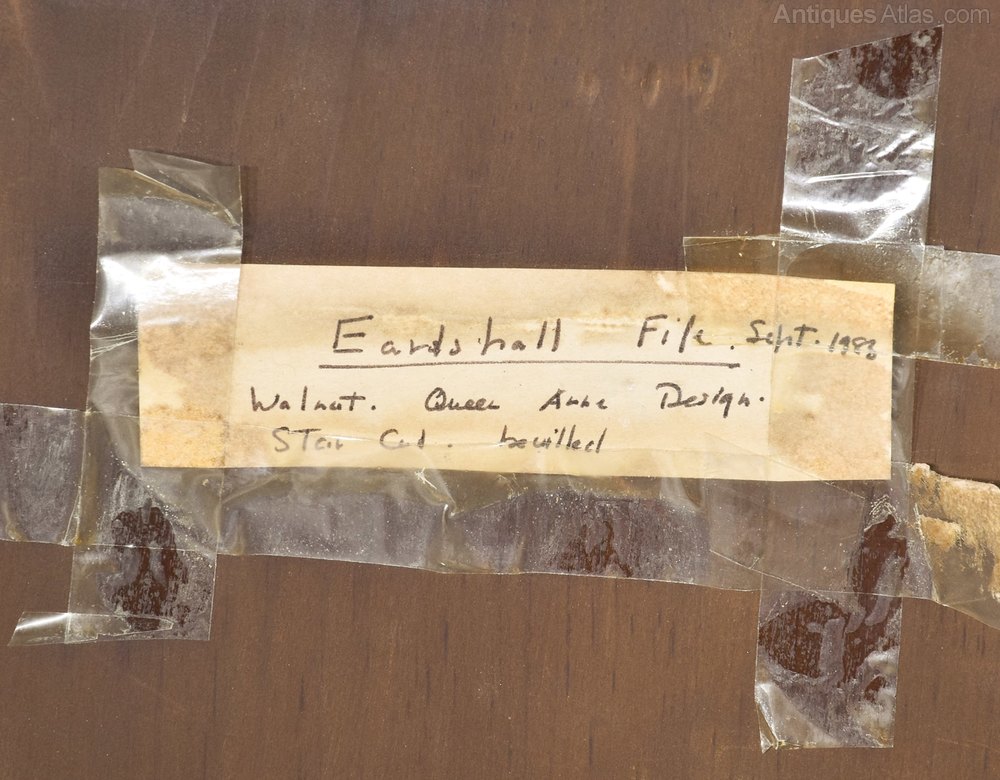 AntiquesAtlas.com
Eardshall File. Sept. 1983
Walnut. Queen Anne Design.
Star Cut. bevilled